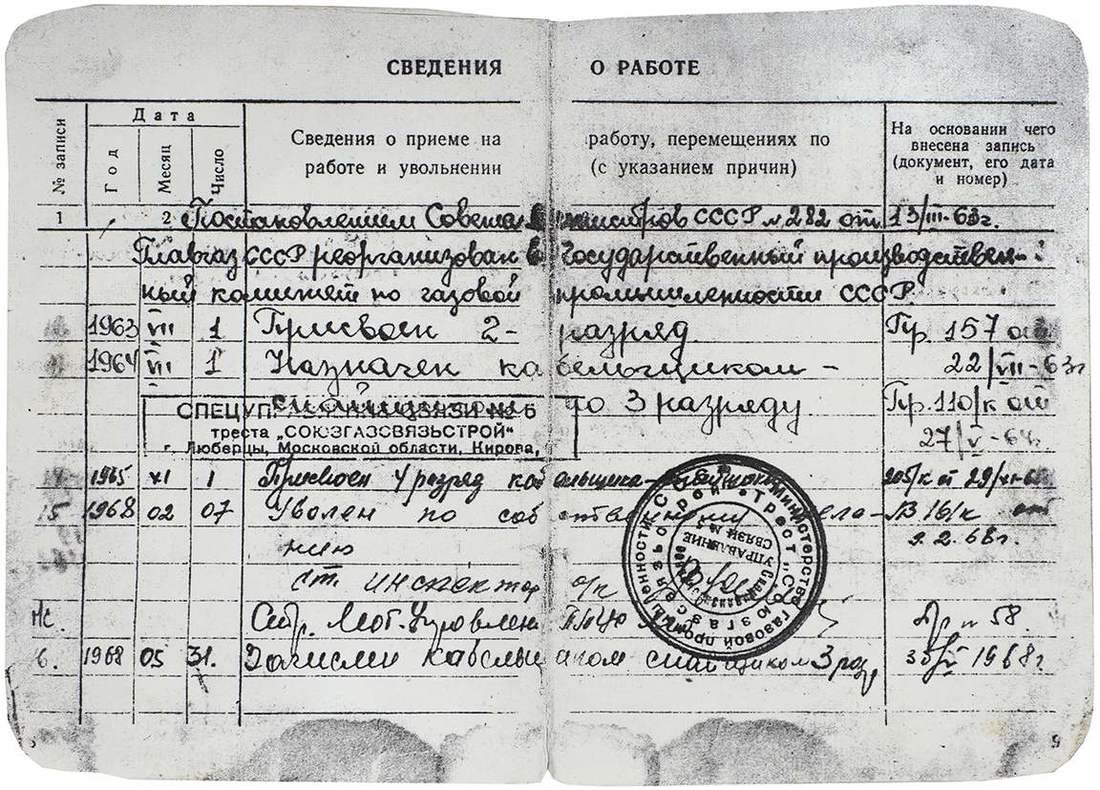 СВЕДЕНИЯ О РАБОТЕ
№ записи
Дата
Год
Месяц
Число
Сведения о приеме на работу, перемещениях по
работе и увольнении (с указанием причин)
На основании чего
внесена запись
(документ, его дата
и номер)
1 2 Постановлением Совета Министров СССР № 282 от 13/III-63г.
Главгаз СССР реорганизован в Государственный производствен-
ный комитет по газовой промышленности СССР.
1963 VII 1 Присвоен 2- разряд. Пр. 157 от
1964 VII 1 Назначен кабельщиком - 22/VII-63г
спайщиком по 3 разряду Пр. 110/к от
27/V-64г.
СВЯЗИ № 5
треста „СОЮЗГАЗСВЯЗЬСТРОЙ“
г. Люберцы, Московской области, Кирова,
14 1965 XI 1 Присвоен 4 разряд кабельщика-спайщика 205/к от 29/XI-65
15 1968 02 07 Уволен по собственному жела- № 16/к от
нию 9.2.68г.
ст. инспектор о/к
Министерство газовой промышленности СССР
Трест „Союзгазсвязьстрой“
УПРАВЛЕНИЕ
СВЯЗИ №
Пр № 58.
6. 1968 05 31. Зачислен кабельщиком спайщиком 3 раз. 30/V 1968г
9